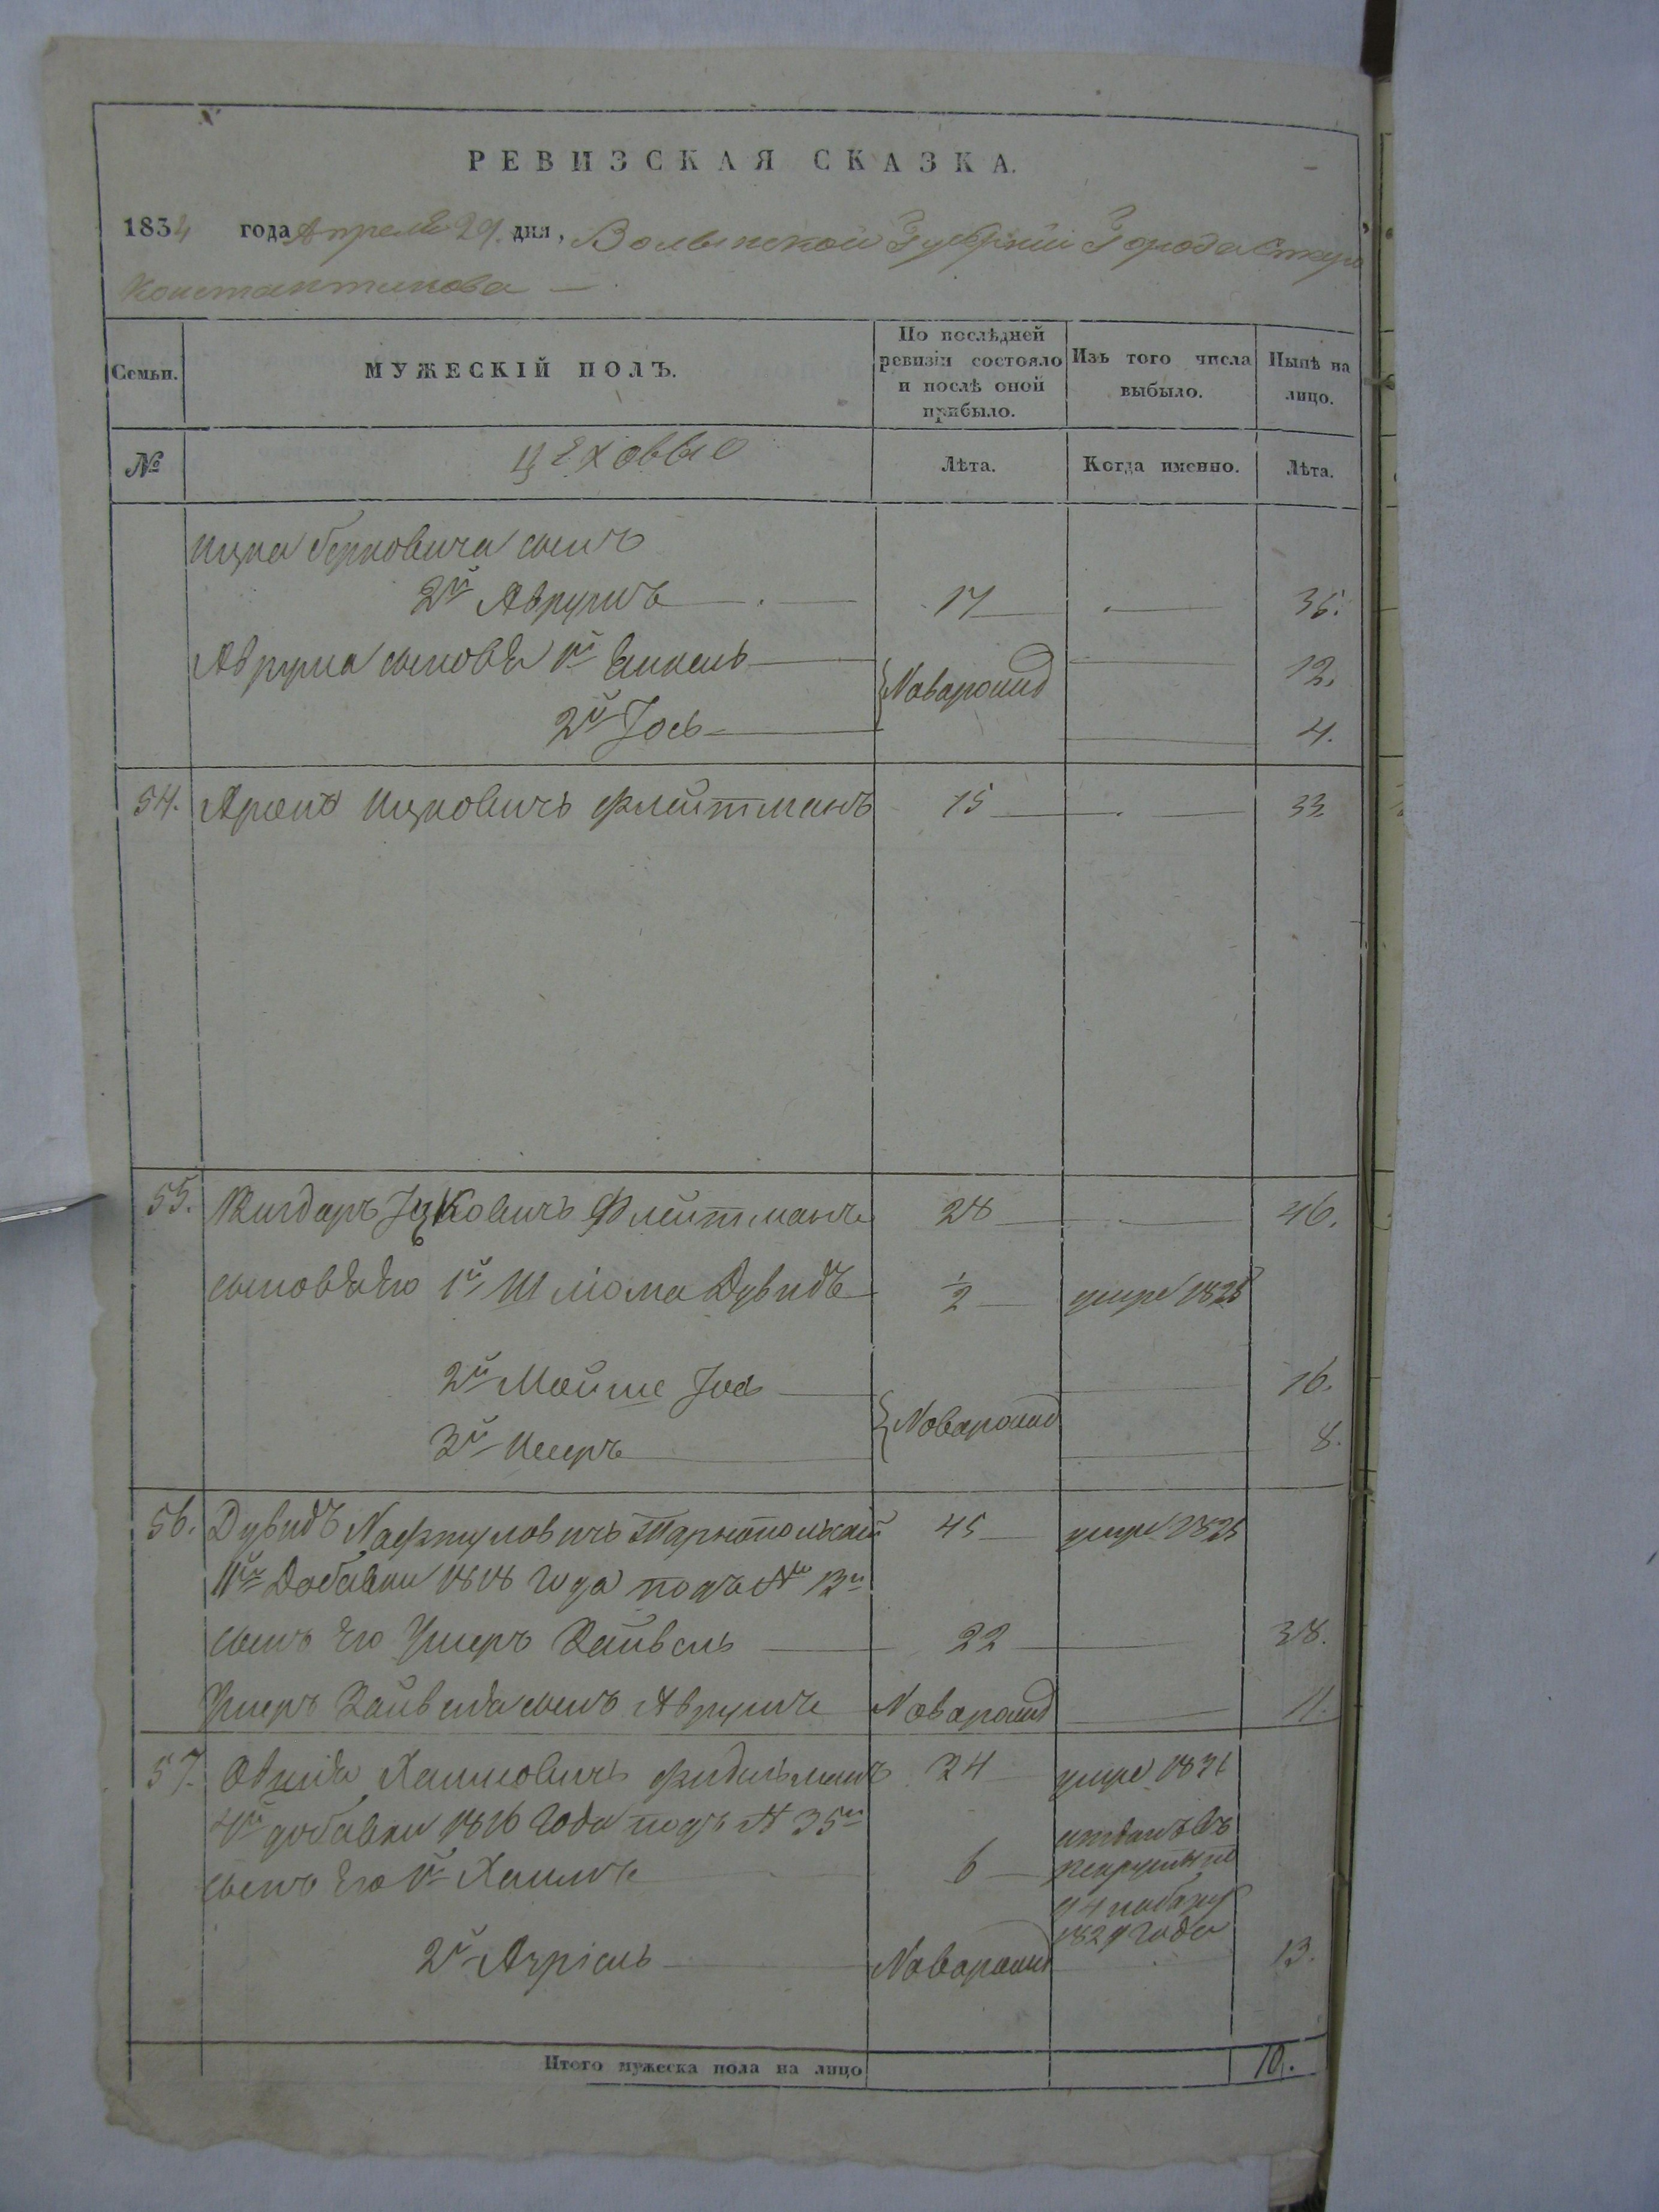 РЕВИЗСКАЯ СКАЗКА.
1834 года Апреля 29. дня, Волынской Губернии Города Старо
Константинова —
Семьи. МУЖЕСКІЙ ПОЛЪ. По послѣдней ревизіи состояло и послѣ оной прибыло. Изъ того числа выбыло. Нынѣ на лицо.
№ Цеховые Лѣта. Когда именно. Лѣта.
Ицка Берковича сынъ
2й Аврумъ 17 35.
Аврума сыновья 1й ЯнкельНоворожд 12.
2й Іось 4.
54. Аронъ Ицковичъ Флейтманъ 15 33
55. Жигдаръ Іцковичъ Флейтманъ 28 46.
сыновья Его 1й Шліома Дувидъ ½ умре 1828
2й Мойше Іось Новорожд 16.
3й Ушеръ 8.
56. Дувидъ Нафтуловичъ Тарнопольскій 45 умре 1825
11й Добавки 1818 года подъ № 13м
сынъ Его Ушеръ Зайвель 22 38.
Ушеръ Зайвеля сынъ Аврумъ Новорожд 11.
57. Хаимовичъ Фидельманъ 24 умре 1831
4й добавки 1816 года подъ № 35м
сынъ Его 1й Хаимъ 6 отданъ въ рекруты по 94 набору 1829 года
2й Азріель Новорожд 13.
Итого мужеска пола на лицо 10.